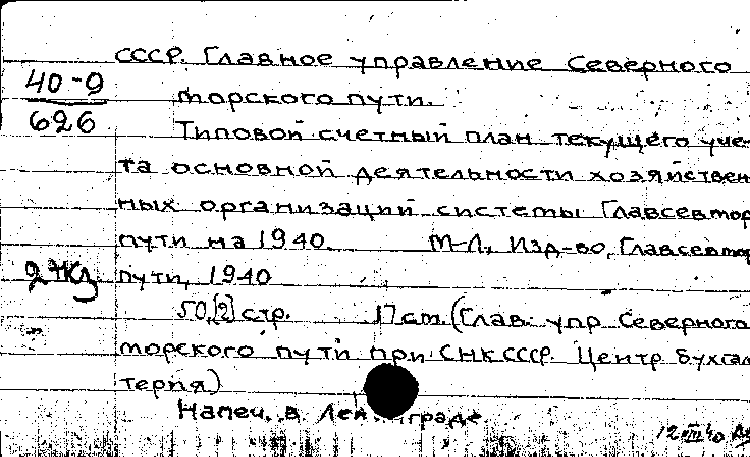 СССР. Главное управление Северного
40-9
морского пути.
626
Типовой счетный план текущего уче-
та основной деятельности хозяйствен
ных организаций системы Главсевмор
пути на 1940. М-Л, Изд-во, Главсевмор
пути, 1940
50,[2] стр. 17 см. (Глав. упр Северного
морского пути при СНК СССР. Центр бухгал
терия)
Напеч. в Лен нграде
12 VIII 40